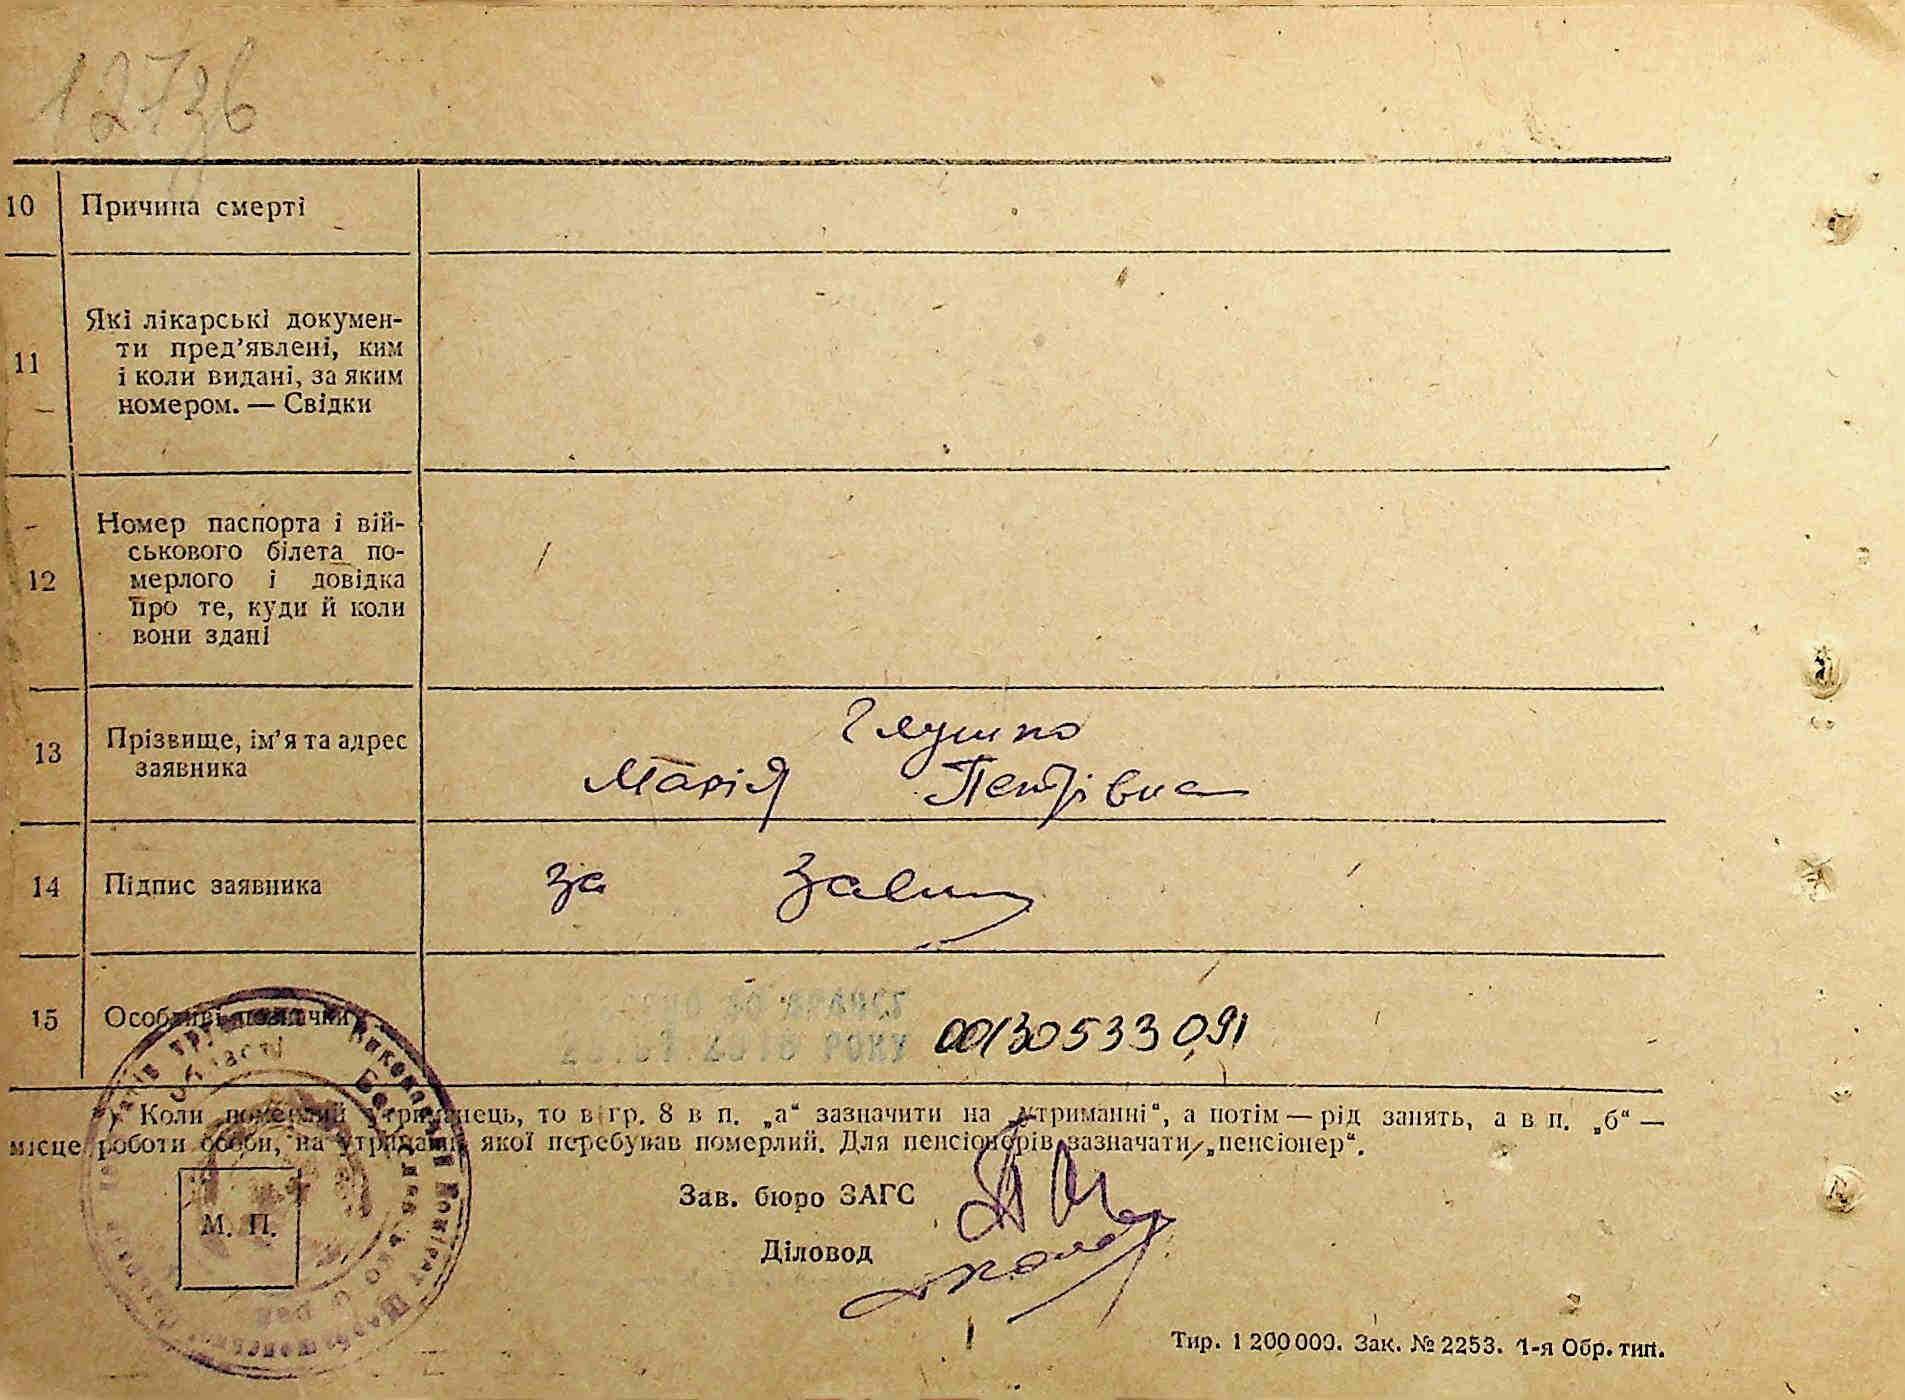 12736
10 Причина смерті
11 Які лікарські докумен-
ти пред’явлені, ким
і коли видані, за яким
номером. — Свідки
12 Номер паспорта і вій-
ськового білета по-
мерлого і довідка
про те, куди й коли
вони здані
13 Прізвище, ім’я та адрес
заявника
Глушко
Марія Петрівна
14 Підпис заявника
за
15 Особливі
РОКУ
00130533091
*) Коли померлий утриманець, то в гр. 8 в п. „а“ зазначити на утриманні“, а потім — рід занять, а в п. „б“ —
місце роботи особи, на утриманні якої перебував померлий. Для пенсіонерів зазначати „пенсіонер“.
Зав. бюро ЗАГС
Діловод
М. П.
Тир. 1 200 000. Зак. № 2253. 1-я Обр. тип.